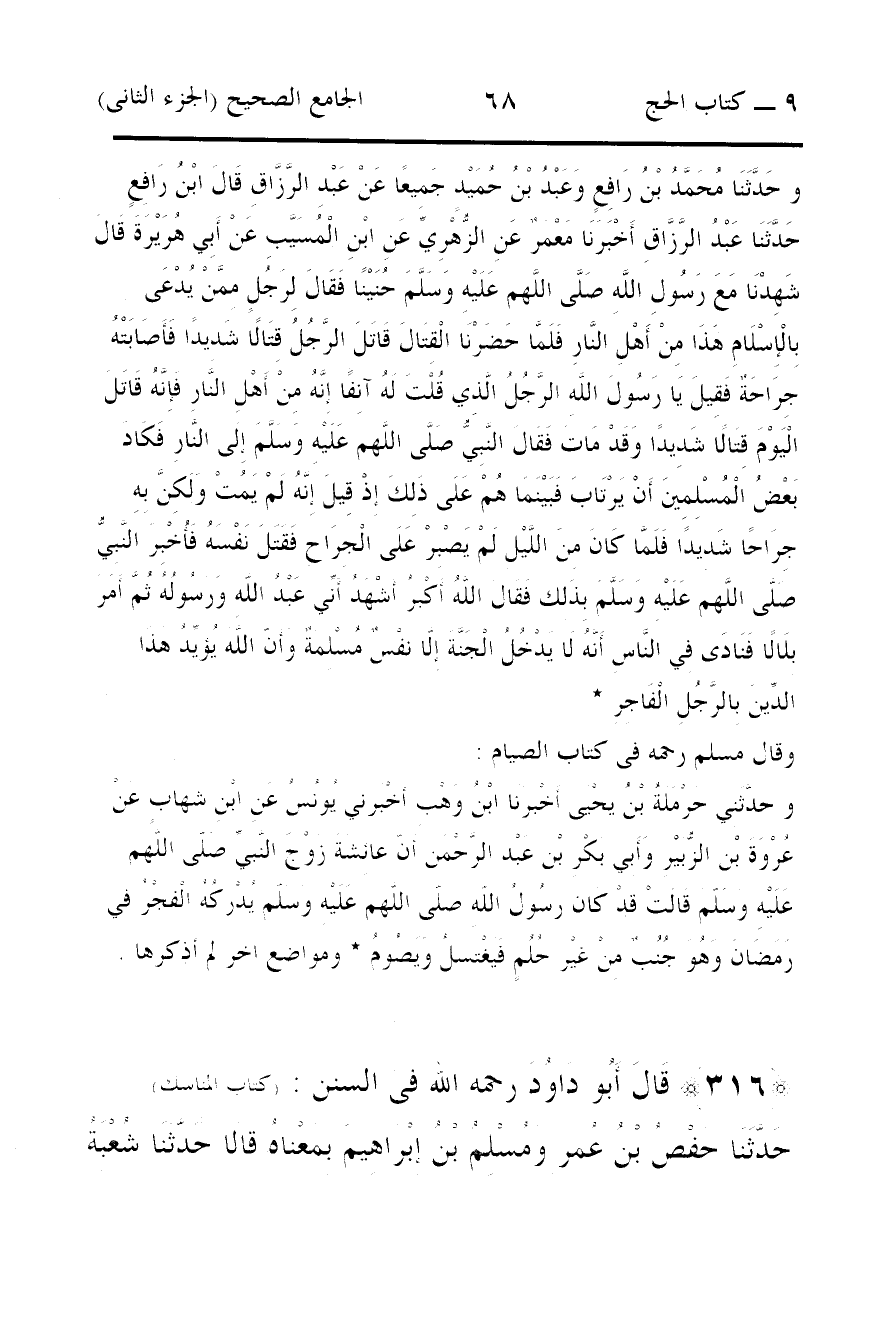 ٩ ــ كتاب الحج ٦٨ الجامع الصحيح (الجزء الثانى)
و حَدَّثَنَا مُحَمَّدُ بْنُ رَافِعٍ وَعَبْدُ بْنُ حُمَيْدٍ جَمِيعًا عَنْ عَبْدِ الرَّزَّاقِ قَالَ ابْنُ رَافِعٍ
حَدَّثَنَا عَبْدُ الرَّزَّاقِ أَخْبَرَنَا مَعْمَرٌ عَنِ الزُّهْرِيِّ عَنِ ابْنِ الْمُسَيَّبِ عَنْ أَبِي هُرَيْرَةَ قَالَ
شَهِدْنَا مَعَ رَسُولِ اللهِ صَلَّى اللهم عَلَيْهِ وَسَلَّمَ حُنَيْنًا فَقَالَ لِرَجُلٍ مِمَّنْ يُدْعَى
بِالْإِسْلَامِ هَذَا مِنْ أَهْلِ النَّارِ فَلَمَّا حَضَرْنَا الْقِتَالَ قَاتَلَ الرَّجُلُ قِتَالًا شَدِيدًا فَأَصَابَتْهُ
جِرَاحَةٌ فَقِيلَ يَا رَسُولَ اللهِ الرَّجُلُ الَّذِي قُلْتَ لَهُ آنِفًا إِنَّهُ مِنْ أَهْلِ النَّارِ فَإِنَّهُ قَاتَلَ
الْيَوْمَ قِتَالًا شَدِيدًا وَقَدْ مَاتَ فَقَالَ النَّبِيُّ صَلَّى اللهم عَلَيْهِ وَسَلَّمَ إِلَى النَّارِ فَكَادَ
بَعْضُ الْمُسْلِمِينَ أَنْ يَرْتَابَ فَبَيْنَمَا هُمْ عَلَى ذَلِكَ إِذْ قِيلَ إِنَّهُ لَمْ يَمُتْ وَلَكِنَّ بِهِ
جِرَاحًا شَدِيدًا فَلَمَّا كَانَ مِنَ اللَّيْلِ لَمْ يَصْبِرْ عَلَى الْجِرَاحِ فَقَتَلَ نَفْسَهُ فَأُخْبِرَ النَّبِيُّ
صَلَّى اللهم عَلَيْهِ وَسَلَّمَ بِذَلِكَ فَقَالَ اللَّهُ أَكْبَرُ أَشْهَدُ أَنِّي عَبْدُ اللهِ وَرَسُولُهُ ثُمَّ أَمَرَ
بِلَالًا فَنَادَى فِي النَّاسِ أَنَّهُ لَا يَدْخُلُ الْجَنَّةَ إِلَّا نَفْسٌ مُسْلِمَةٌ وَأَنَّ اللهَ يُؤَيِّدُ هَذَا
الدِّينَ بِالرَّجُلِ الْفَاجِرِ *
وقال مسلم رحمه فى كتاب الصيام :
و حَدَّثَنِي حَرْمَلَةُ بْنُ يَحْيَى أَخْبَرَنَا ابْنُ وَهْبٍ أَخْبَرَنِي يُونُسُ عَنِ ابْنِ شِهَابٍ عَنْ
عُرْوَةَ بْنِ الزُّبَيْرِ وَأَبِي بَكْرِ بْنِ عَبْدِ الرَّحْمَنِ أَنَّ عَائِشَةَ زَوْجَ النَّبِيِّ صَلَّى اللهم
عَلَيْهِ وَسَلَّمَ قَالَتْ قَدْ كَانَ رَسُولُ اللهِ صَلَّى اللهم عَلَيْهِ وَسَلَّمَ يُدْرِكُهُ الْفَجْرُ فِي
رَمَضَانَ وَهُوَ جُنُبٌ مِنْ غَيْرِ حُلُمٍ فَيَغْتَسِلُ وَيَصُومُ * ومواضع اخر لم أذكرها .
﴿٣١٦﴾ قَالَ أَبُو دَاوُدَ رحمه الله فى السنن : (كتاب المناسك)
حَدَّثَنَا حَفْصُ بْنُ عُمَرَ وَمُسْلِمُ بْنُ إِبْرَاهِيمَ بِمَعْنَاهُ قَالَا حَدَّثَنَا شُعْبَةُ